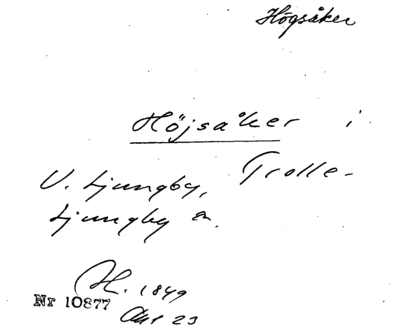 Högsåker
Höjsåker i
V. Ljungby, Trolle-
Ljungby sn.
H. 1849
Nr 10877
Akt 23